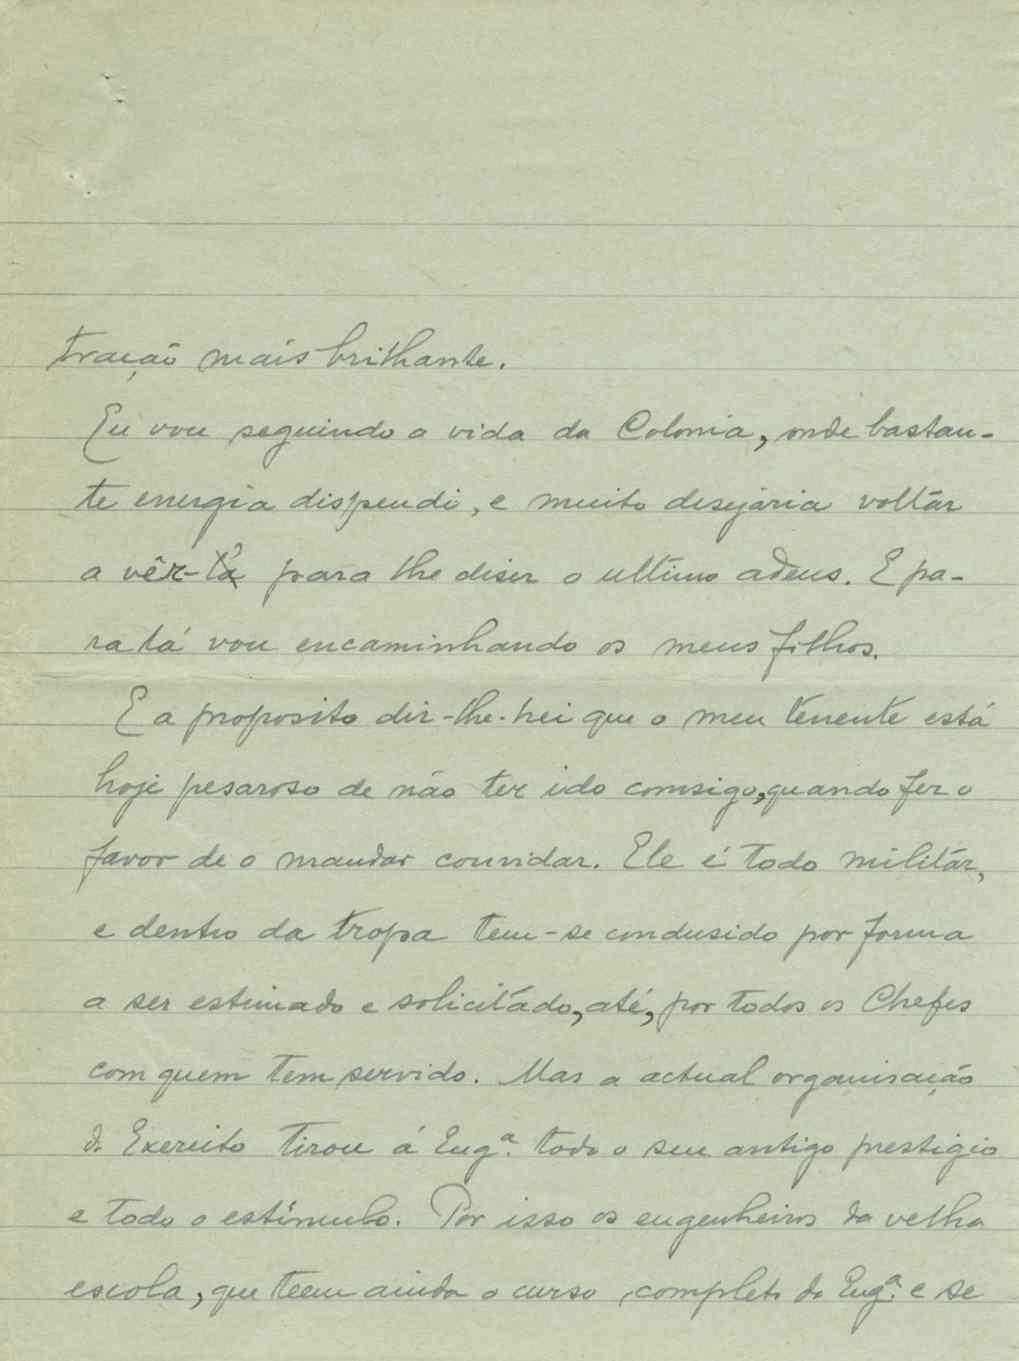 tração mais brilhante.
Eu vou seguindo a vida da Colonia, onde bastan-
te energia dispendi, e muito desejaria voltár
a vêr-lá para lhe diser o ultimo adeus. E pa-
ra lá vou encaminhando os meus filhos.
E a proposito dir-lhe-hei que o meu tenente está
hoje pesaroso de não ter ido comsigo, quando fez o
favor de o mandar convidar. Ele é todo militár,
e dentro da tropa tem-se condusido por forma
a ser estimado e solicitádo, até, por todos os Chefes
com quem tem servido. Mas a actual organisação
do Exercito tirou á Engª. todo o seu antigo prestigio
e todo o estímulo. Por isso os engenheiros da velha
escola, que teem ainda o curso completo de Engª. e se